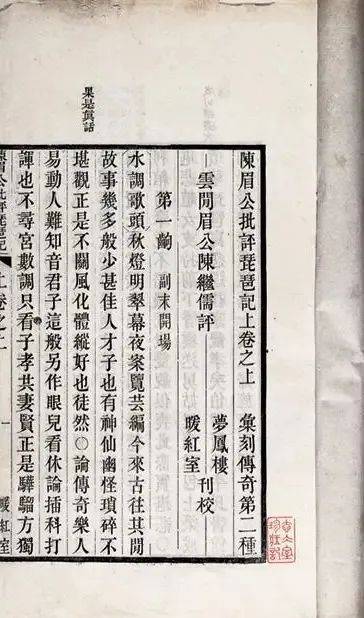 陳眉公批評琵琶記上卷之上 彙刻傳奇第二種
夢鳳樓
刊校
暖紅室
雲閒眉公陳繼儒評
第一齣 副末開場
水調歌頭秋燈明翠幕夜案覽芸編今來古往其閒
故事幾多般少甚佳人才子也有神仙幽怪瑣碎不
堪觀正是不關風化體縱好也徒然○論傳奇樂人
易動人難知音君子這般另作眼兒看休論插科打
諢也不尋宮數調只看子孝共妻賢正是驊騮方獨
果是眞話
陳眉公批評琵琶記 卷之上 一 暖紅室